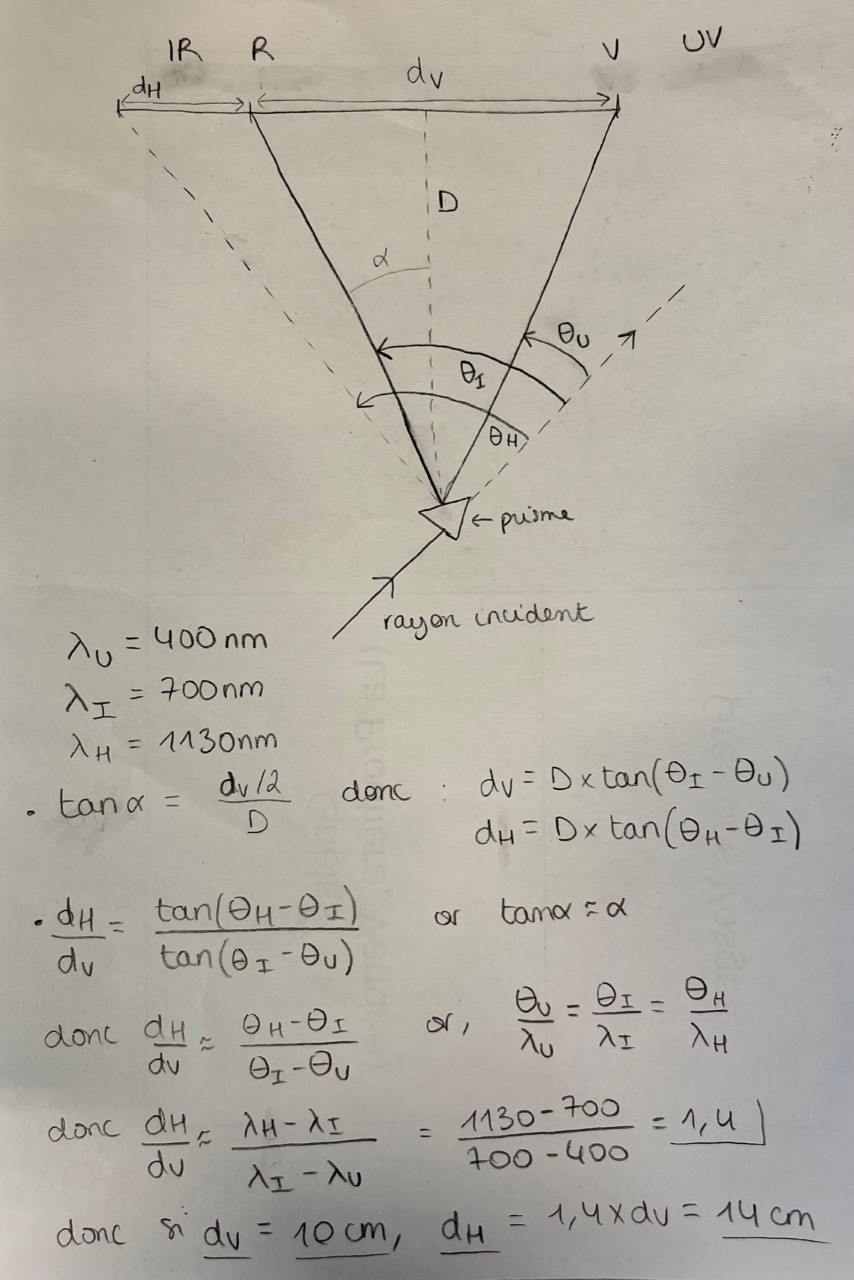 IR R V UV
dH dv
D
α
θU
θI
θH
← prisme
rayon incident
λU = 400 nm
λI = 700 nm
λH = 1130 nm
• tan α = (dv/2)/D donc : dv = D × tan(θI - θU)
dH = D × tan(θH - θI)
• dH/dv = tan(θH - θI)/tan(θI - θU) or tan α ≈ α
donc dH/dv ≈ (θH - θI)/(θI - θU) or, θU/λU = θI/λI = θH/λH
donc dH/dv ≈ (λH - λI)/(λI - λU) = (1130 - 700)/(700 - 400) = 1,4
donc si dv = 10 cm, dH = 1,4 × dv = 14 cm